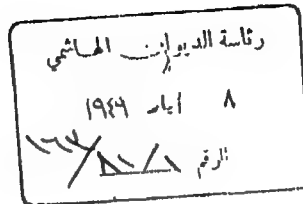 رئاسة الديوان الهاشمي
٨ أيار ١٩٤٩
الرقم